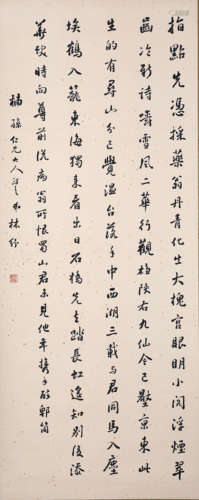 指點先憑採藥翁丹青化出大槐宮眼明小閣浮煙翠
齒冷新詩嚼雪風二華行觀雄陝右九仙今已壓京東此
生的有尋山分已覺溫台落手中西湖三載與君同馬入塵
埃鶴入籠東海獨來看出日石橋先去踏長虹遙知別後添
華髮時向尊前說病翁所恨蜀山君未見他年攜手醉郫筒
孫仁兄大人正之 弟林紓